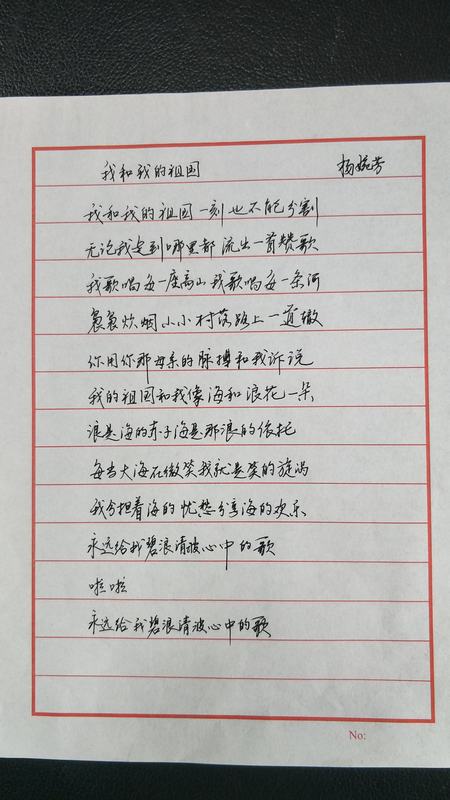 我和我的祖国 杨婉芳
我和我的祖国一刻也不能分割
无论我走到哪里都流出一首赞歌
我歌唱每一座高山我歌唱每一条河
袅袅炊烟小小村落路上一道辙
你用你那母亲的脉搏和我诉说
我的祖国和我像海和浪花一朵
浪是海的赤子海是那浪的依托
每当大海在微笑我就是笑的旋涡
我分担着海的忧愁分享海的欢乐
永远给我碧浪清波心中的歌
啦啦
永远给我碧浪清波心中的歌
No: